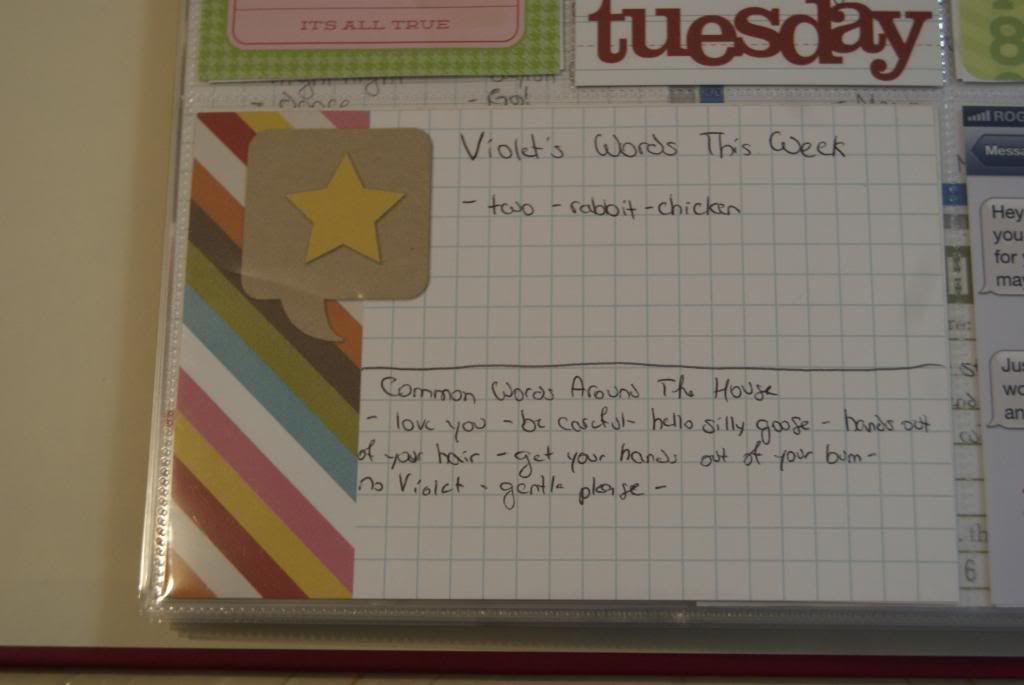 IT'S ALL TRUE
tuesday
8
- Dance
- Go!
ROG
Messa
Violet's Words This Week
- two - rabbit - chicken
Hey
you
for
ma
Common Words Around The House
- love you - be careful - hello silly goose - hands out
of your hair - get your hands out of your bum -
no Violet - gentle please -
Jus
wo
an
6